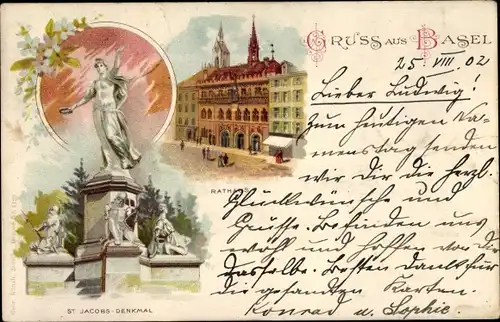 GRUSS AUS BASEL
25 VIII. 02
Lieber Ludwig!
Zum heutigen Na-
menstag senden
wir Dir die herzl.
Glückwünsche und
Grüsse. Befinden uns
wohl und hoffen von dir
Dasselbe. Besten Dank für
die gesandten Karten.
Konrad u. Sophie.
RATHAUS
ST JACOBS-DENKMAL